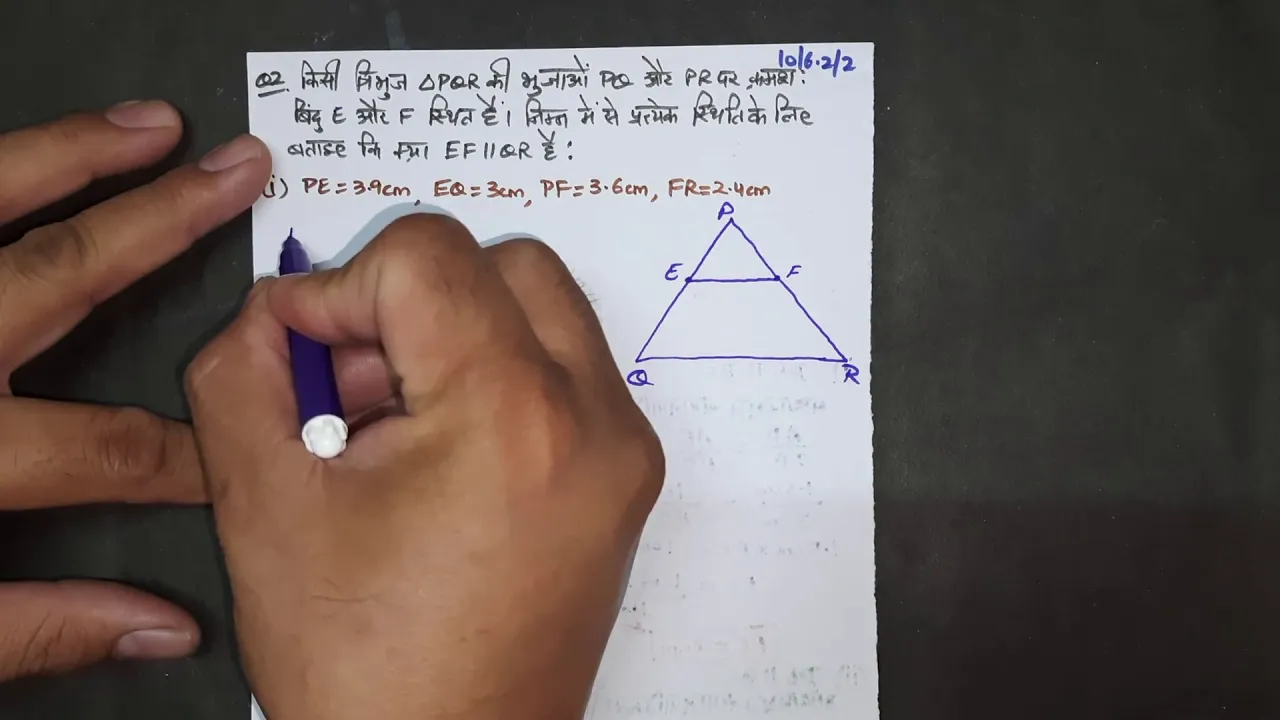 10/6.2/2
Q2. किसी त्रिभुज △PQR की भुजाओं PQ और PR पर क्रमशः
बिंदु E और F स्थित हैं। निम्न में से प्रत्येक स्थिति के लिए
बताइए कि क्या EF||QR है:
(i) PE=3.9cm, EQ=3cm, PF=3.6cm, FR=2.4cm
P
E F
Q R